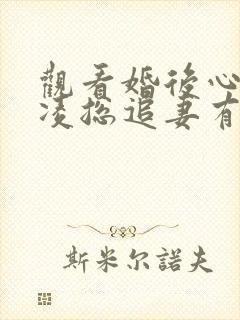 觀看婚後心
凌总追妻有
斯米尔諾夫